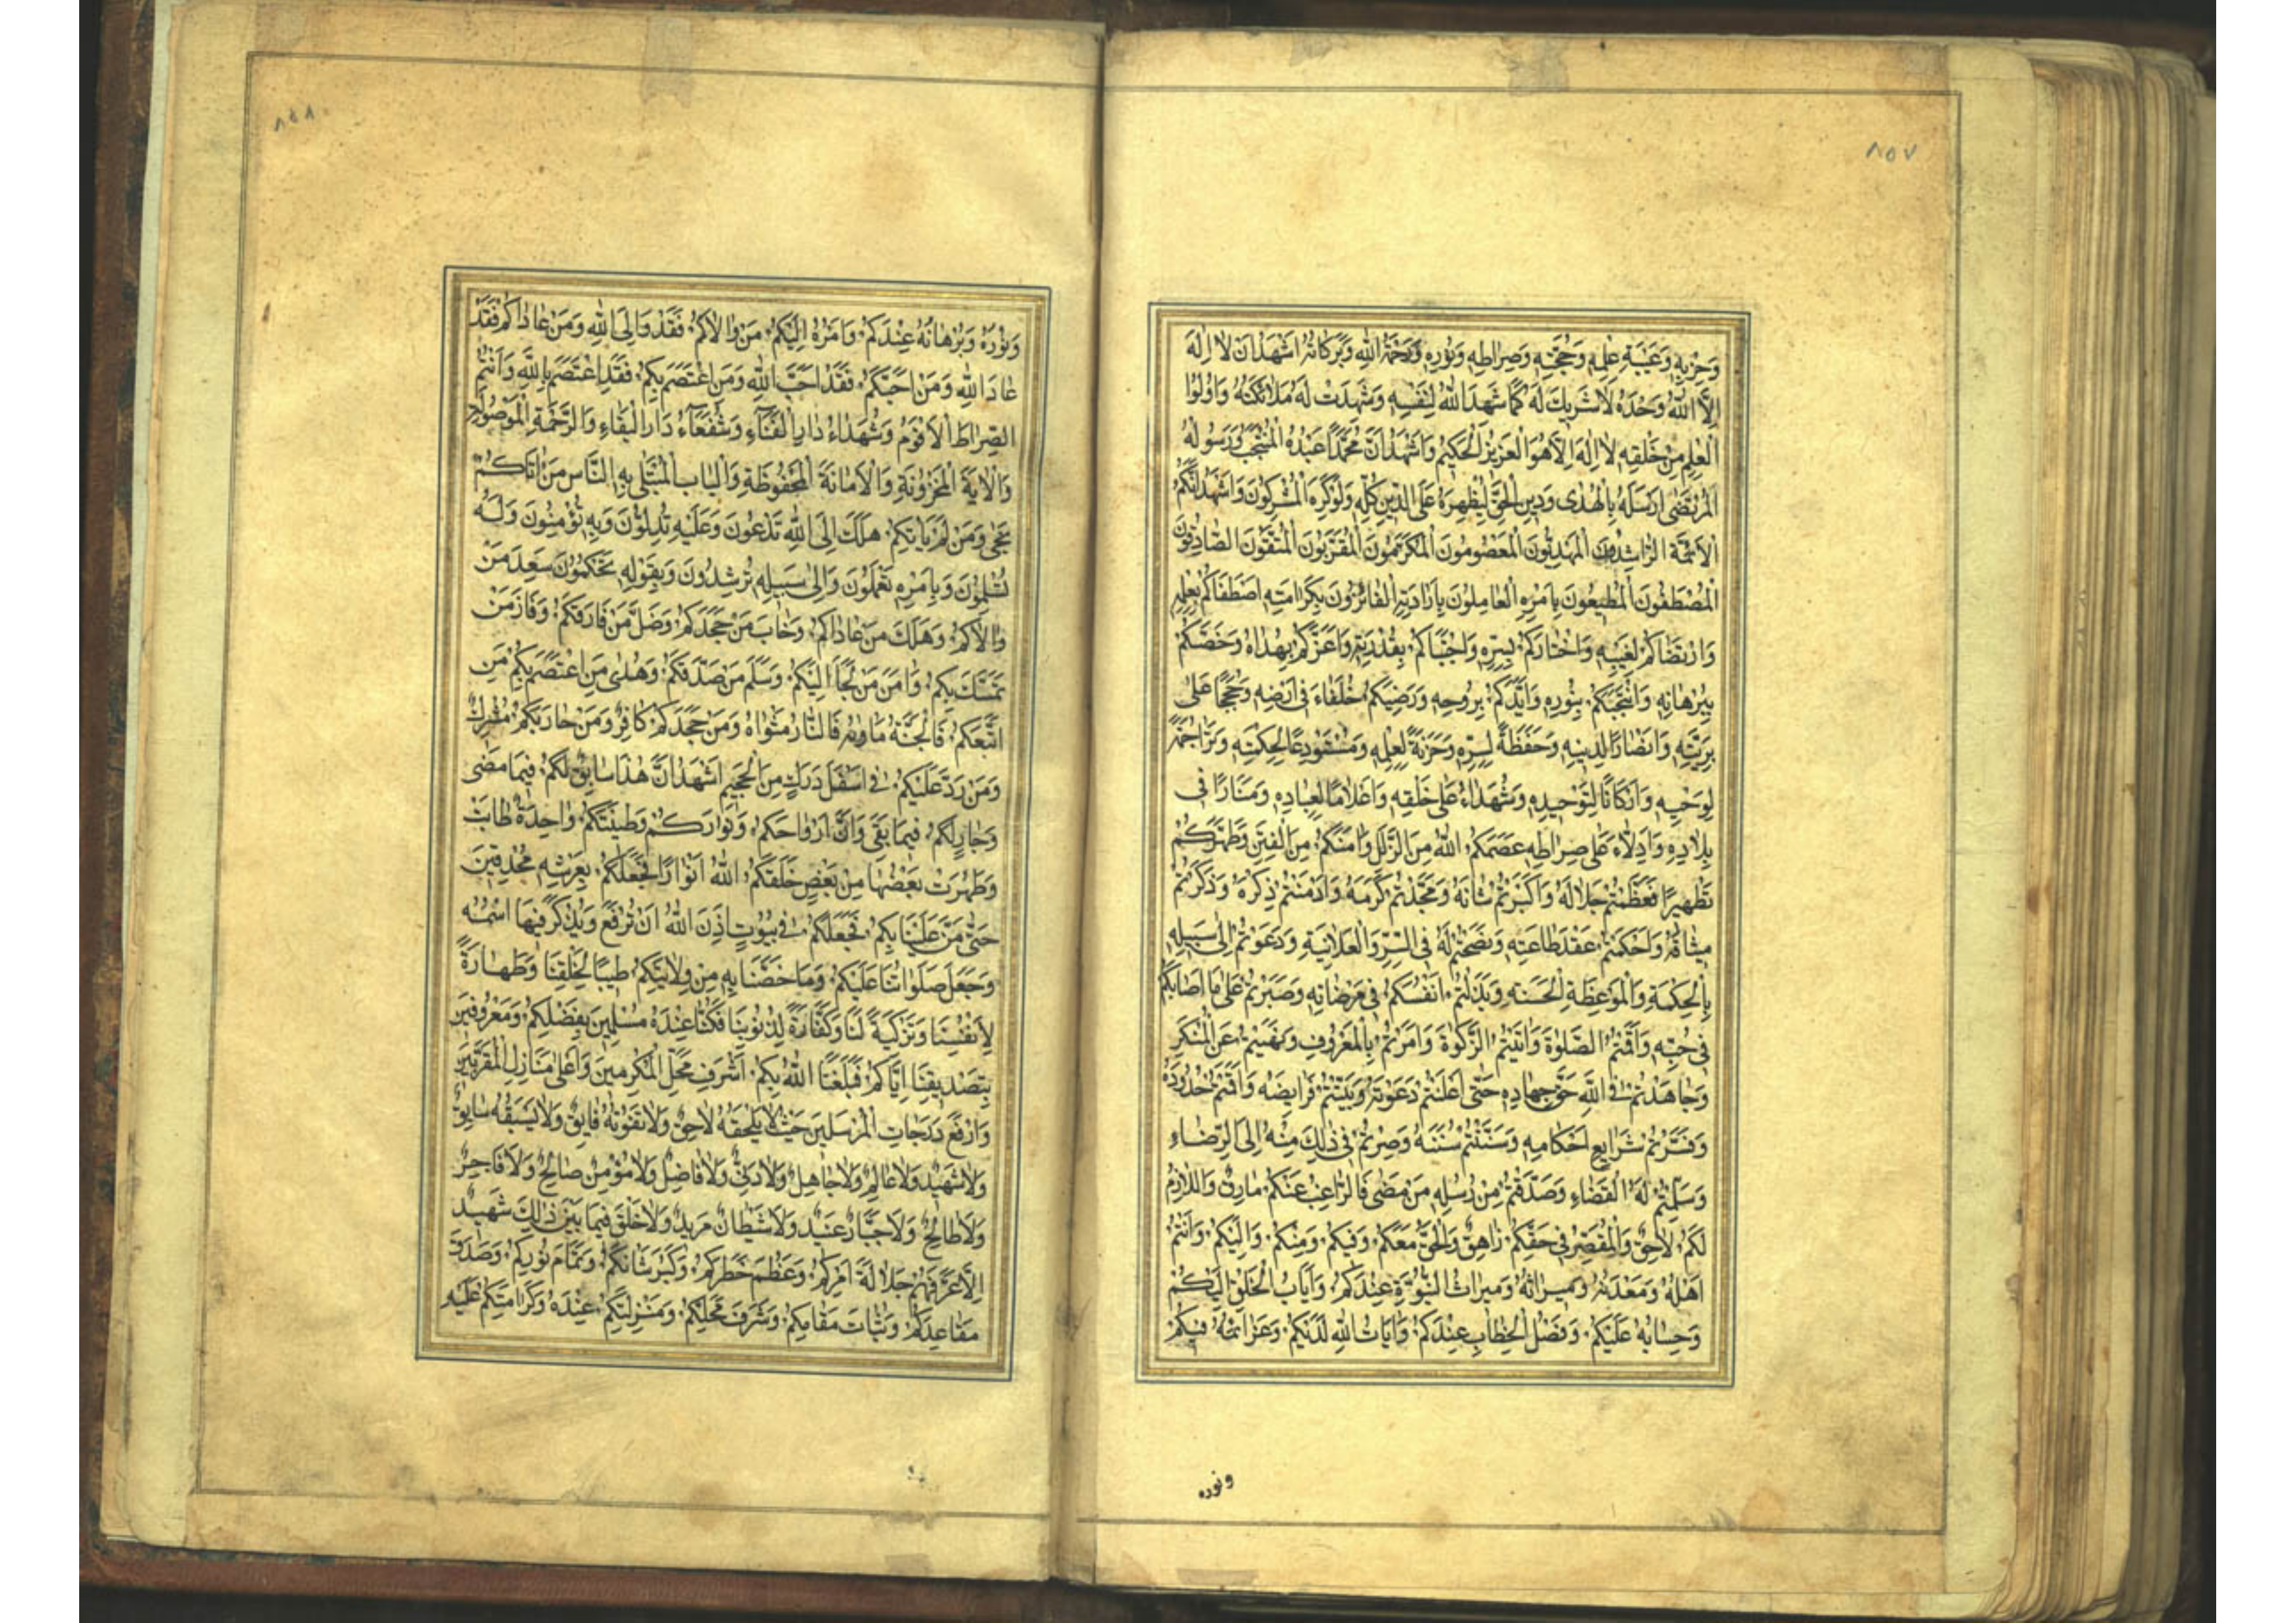 ٨٥٧
وَحِزْبِهِ وَعَيْبَةِ عِلْمِهِ وَحُجَّتِهِ وَصِرَاطِهِ وَنُورِهِ وَرَحْمَةُ اللهِ وَبَرَكَاتُهُ اَشْهَدُ اَنْ لَا اِلٰهَ
اِلَّا اللهُ وَحْدَهُ لَا شَرِيكَ لَهُ كَمَا شَهِدَ اللهُ لِنَفْسِهِ وَشَهِدَتْ لَهُ مَلَائِكَتُهُ وَاُولُوا
الْعِلْمِ مِنْ خَلْقِهِ لَا اِلٰهَ اِلَّا هُوَ الْعَزِيزُ الْحَكِيمُ وَاَشْهَدُ اَنَّ مُحَمَّدًا عَبْدُهُ الْمُنْتَجَبُ وَرَسُولُهُ
الْمُرْتَضٰى اَرْسَلَهُ بِالْهُدٰى وَدِينِ الْحَقِّ لِيُظْهِرَهُ عَلَى الدِّينِ كُلِّهِ وَلَوْ كَرِهَ الْمُشْرِكُونَ وَاَشْهَدُ اَنَّكُمُ
الْاَئِمَّةُ الرَّاشِدُونَ الْمَهْدِيُّونَ الْمَعْصُومُونَ الْمُكَرَّمُونَ الْمُقَرَّبُونَ الْمُتَّقُونَ الصَّادِقُونَ
الْمُصْطَفُونَ الْمُطِيعُونَ بِاَمْرِهِ الْعَامِلُونَ بِاِرَادَتِهِ الْفَائِزُونَ بِكَرَامَتِهِ اصْطَفَاكُمْ بِعِلْمِهِ
وَارْتَضَاكُمْ لِغَيْبِهِ وَاخْتَارَكُمْ لِسِرِّهِ وَاجْتَبَاكُمْ بِقُدْرَتِهِ وَاَعَزَّكُمْ بِهُدَاهُ وَخَصَّكُمْ
بِبُرْهَانِهِ وَانْتَجَبَكُمْ بِنُورِهِ وَاَيَّدَكُمْ بِرُوحِهِ وَرَضِيَكُمْ خُلَفَاءَ فِى اَرْضِهِ وَحُجَجًا عَلٰى
بَرِيَّتِهِ وَاَنْصَارًا لِدِينِهِ وَحَفَظَةً لِسِرِّهِ وَخَزَنَةً لِعِلْمِهِ وَمُسْتَوْدَعًا لِحِكْمَتِهِ وَتَرَاجِمَةً
لِوَحْيِهِ وَاَرْكَانًا لِتَوْحِيدِهِ وَشُهَدَاءَ عَلٰى خَلْقِهِ وَاَعْلَامًا لِعِبَادِهِ وَمَنَارًا فِى
بِلَادِهِ وَاَدِلَّاءَ عَلٰى صِرَاطِهِ عَصَمَكُمُ اللهُ مِنَ الزَّلَلِ وَاٰمَنَكُمْ مِنَ الْفِتَنِ وَطَهَّرَكُمْ
تَطْهِيرًا فَعَظَّمْتُمْ جَلَالَهُ وَاَكْبَرْتُمْ شَانَهُ وَمَجَّدْتُمْ كَرَمَهُ وَاَدْمَنْتُمْ ذِكْرَهُ وَذَكَّرْتُمْ
مِيثَاقَهُ وَاَحْكَمْتُمْ عَقْدَ طَاعَتِهِ وَنَصَحْتُمْ لَهُ فِى السِّرِّ وَالْعَلَانِيَةِ وَدَعَوْتُمْ اِلٰى سَبِيلِهِ
بِالْحِكْمَةِ وَالْمَوْعِظَةِ الْحَسَنَةِ وَبَذَلْتُمْ اَنْفُسَكُمْ فِى مَرْضَاتِهِ وَصَبَرْتُمْ عَلٰى مَا اَصَابَكُمْ
فِى حُبِّهِ وَاَقَمْتُمُ الصَّلٰوةَ وَاٰتَيْتُمُ الزَّكٰوةَ وَاَمَرْتُمْ بِالْمَعْرُوفِ وَنَهَيْتُمْ عَنِ الْمُنْكَرِ
وَجَاهَدْتُمْ فِى اللهِ حَقَّ جِهَادِهِ حَتّٰى اَعْلَنْتُمْ دَعْوَتَهُ وَبَيَّنْتُمْ فَرَايِضَهُ وَاَقَمْتُمْ حُدُودَهُ
وَفَسَّرْتُمْ شَرَايِعَ اَحْكَامِهِ وَسَنَنْتُمْ سُنَنَهُ وَصِرْتُمْ فِى ذٰلِكَ مِنْهُ اِلَى الرِّضَاءِ
وَسَلَّمْتُمْ لَهُ الْقَضَاءِ وَصَدَّقْتُمْ مِنْ رُسُلِهِ مَنْ مَضٰى فَالرَّاغِبُ عَنْكُمْ مَارِقٌ وَاللَّازِمُ
لَكُمْ لَاحِقٌ وَالْمُقَصِّرُ فِى حَقِّكُمْ زَاهِقٌ وَالْحَقُّ مَعَكُمْ وَفِيكُمْ وَمِنْكُمْ وَاِلَيْكُمْ وَاَنْتُمْ
اَهْلُهُ وَمَعْدِنُهُ وَمِيرَاثُهُ وَمِيرَاثُ النُّبُوَّةِ عِنْدَكُمْ وَاِيَابُ الْخَلْقِ اِلَيْكُمْ
وَحِسَابُهُ عَلَيْكُمْ وَفَصْلُ الْخِطَابِ عِنْدَكُمْ وَاٰيَاتُ اللهِ لَدَيْكُمْ وَعَزَائِمُهُ فِيكُمْ
ونوره
٨٥٨
وَنُورُهُ وَبُرْهَانُهُ عِنْدَكُمْ وَاَمْرُهُ اِلَيْكُمْ مَنْ وَالَاكُمْ فَقَدْ وَالَى اللهِ وَمَنْ عَادَاكُمْ فَقَدْ
عَادَ اللهِ وَمَنْ اَحَبَّكُمْ فَقَدْ اَحَبَّ اللهِ وَمَنِ اعْتَصَمَ بِكُمْ فَقَدِ اعْتَصَمَ بِاللهِ وَاَنْتُمُ
الصِّرَاطُ الْاَقْوَمُ وَشُهَدَاءُ دَارِ الْفَنَاءِ وَشُفَعَاءُ دَارِ الْبَقَاءِ وَالرَّحْمَةِ الْمَوْصُولَةِ
وَالْاٰيَةُ الْمَخْزُونَةِ وَالْاَمَانَةُ الْمَحْفُوظَةِ وَالْبَابُ الْمُبْتَلٰى بِهِ النَّاسُ مَنْ اَتَاكُمْ
نَجٰى وَمَنْ لَمْ يَاتِكُمْ هَلَكَ اِلَى اللهِ تَدْعُونَ وَعَلَيْهِ تَدُلُّونَ وَبِهِ تُؤْمِنُونَ وَلَهُ
تُسَلِّمُونَ وَبِاَمْرِهِ تَعْمَلُونَ وَاِلٰى سَبِيلِهِ تُرْشِدُونَ وَبِقَوْلِهِ تَحْكُمُونَ سَعِدَ مَنْ
وَالَاكُمْ وَهَلَكَ مَنْ عَادَاكُمْ وَخَابَ مَنْ جَحَدَكُمْ وَضَلَّ مَنْ فَارَقَكُمْ وَفَازَ مَنْ
تَمَسَّكَ بِكُمْ وَاَمِنَ مَنْ لَجَاَ اِلَيْكُمْ وَسَلِمَ مَنْ صَدَّقَكُمْ وَهُدِىَ مَنِ اعْتَصَمَ بِكُمْ مَنِ
اتَّبَعَكُمْ فَالْجَنَّةُ مَاوٰيهُ فَالنَّارُ مَثْوَاهُ وَمَنْ جَحَدَكُمْ كَافِرٌ وَمَنْ حَارَبَكُمْ مُشْرِكٌ
وَمَنْ رَدَّ عَلَيْكُمْ فِى اَسْفَلِ دَرَكٍ مِنَ الْجَحِيمِ اَشْهَدُ اَنَّ هٰذَا سَابِقٌ لَكُمْ فِيمَا مَضٰى
وَجَارٍ لَكُمْ فِيمَا بَقِىَ وَاَنَّ اَرْوَاحَكُمْ وَنُوَارَكُمْ وَطِينَتَكُمْ وَاحِدَةٌ طَابَتْ
وَطَهُرَتْ بَعْضُهَا مِنْ بَعْضٍ خَلَقَكُمُ اللهُ اَنْوَارًا فَجَعَلَكُمْ بِعَرْشِهِ مُحْدِقِينَ
حَتّٰى مَنَّ عَلَيْنَا بِكُمْ فَجَعَلَكُمْ فِى بُيُوتٍ اَذِنَ اللهُ اَنْ تُرْفَعَ وَيُذْكَرَ فِيهَا اسْمُهُ
وَجَعَلَ صَلَوَاتَنَا عَلَيْكُمْ وَمَا خَصَّنَا بِهِ مِنْ وِلَايَتِكُمْ طِيبًا لِخَلْقِنَا وَطَهَارَةً
لِاَنْفُسِنَا وَتَزْكِيَةً لَنَا وَكَفَّارَةً لِذُنُوبِنَا فَكُنَّا عِنْدَهُ مُسَلِّمِينَ بِفَضْلِكُمْ وَمَعْرُوفِينَ
بِتَصْدِيقِنَا اِيَّاكُمْ فَبَلَغَنَا اللهُ بِكُمْ اَشْرَفَ مَحَلِّ الْمُكَرَّمِينَ وَاَعْلٰى مَنَازِلِ الْمُقَرَّبِينَ
وَارْفَعْ دَرَجَاتِ الْمُرْسَلِينَ حَيْثُ لَا يَلْحَقُهُ لَاحِقٌ وَلَا تَفُوتُهُ فَايِقٌ وَلَا يَسْبِقُهُ سَابِقٌ
وَلَا شَهِيدٌ وَلَا عَالِمٌ وَلَا جَاهِلٌ وَلَا دَنِىٌّ وَلَا فَاضِلٌ وَلَا مُؤْمِنٌ صَالِحٌ وَلَا فَاجِرٌ
وَلَا طَالِحٌ وَلَا جَبَّارٌ عَنِيدٌ وَلَا شَيْطَانٌ مَرِيدٌ وَلَا خَلْقٌ فِيمَا بَيْنَ ذٰلِكَ شَهِيدٌ
اِلَّا عَرَّفَهُمْ جَلَالَةَ اَمْرِكُمْ وَعِظَمَ خَطَرِكُمْ وَكِبَرَ شَانِكُمْ وَتَمَامَ نُورِكُمْ وَصِدْقَ
مَقَاعِدِكُمْ وَثَبَاتَ مَقَامِكُمْ وَشَرَفَ مَحَلِّكُمْ وَمَنْزِلَتِكُمْ عِنْدَهُ وَكَرَامَتِكُمْ عَلَيْهِ